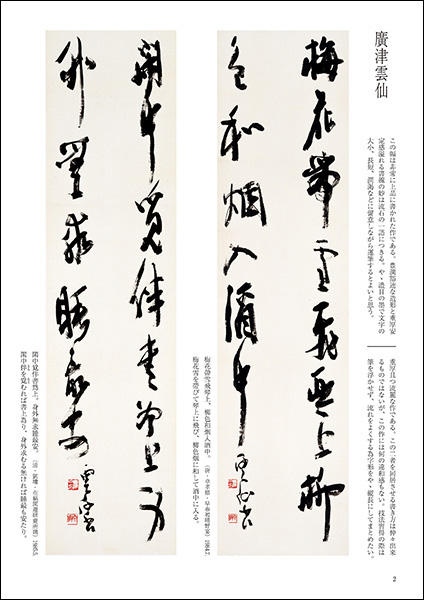 廣津雲仙
この幅は非常に上品に書かれた作である。豊潤豁達な造形と重厚安
定感溢れる書線の妙は流石の一語につきる。やゝ濃目の墨で文字の
大小、長短、潤渇などに留意しながら運筆するとよいと思う。
重厚且つ流麗な作である。この二者を同居させる書き方は仲々出来
るものではないが、この作には何の違和感もない。技法習得の際は
筆を浮かせず、流れをよくする為字形をやゝ縦長にしてまとめたい。
梅花帶雪飛琴上柳
色和烟入酒中 雲仙書
梅花帶雪飛琴上。柳色和烟入酒中。（唐・章孝標・早春初晴野宴）1984.7.
梅花雪を帶びて琴上に飛び、柳色烟に和して酒中に入る。
閑中覓伴書爲上身
外無求睡最安 雲仙書
閑中覓伴書爲上。身外無求睡最安。 1985.5.
閑中伴を覓むれば書上爲り、身外求むる無ければ睡最も安たり。
2